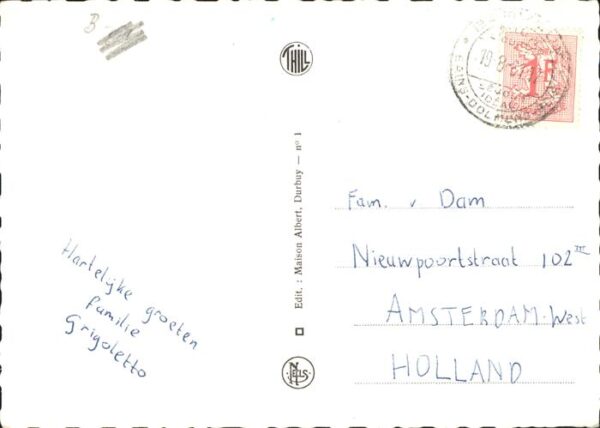 B
THILL
1F
Edit. : Maison Albert, Durbuy — nº 1
NELS
Hartelijke groeten
familie
Grigoletto
Fam. v Dam
Nieuwpoortstraat 102 III
AMSTERDAM-West
HOLLAND